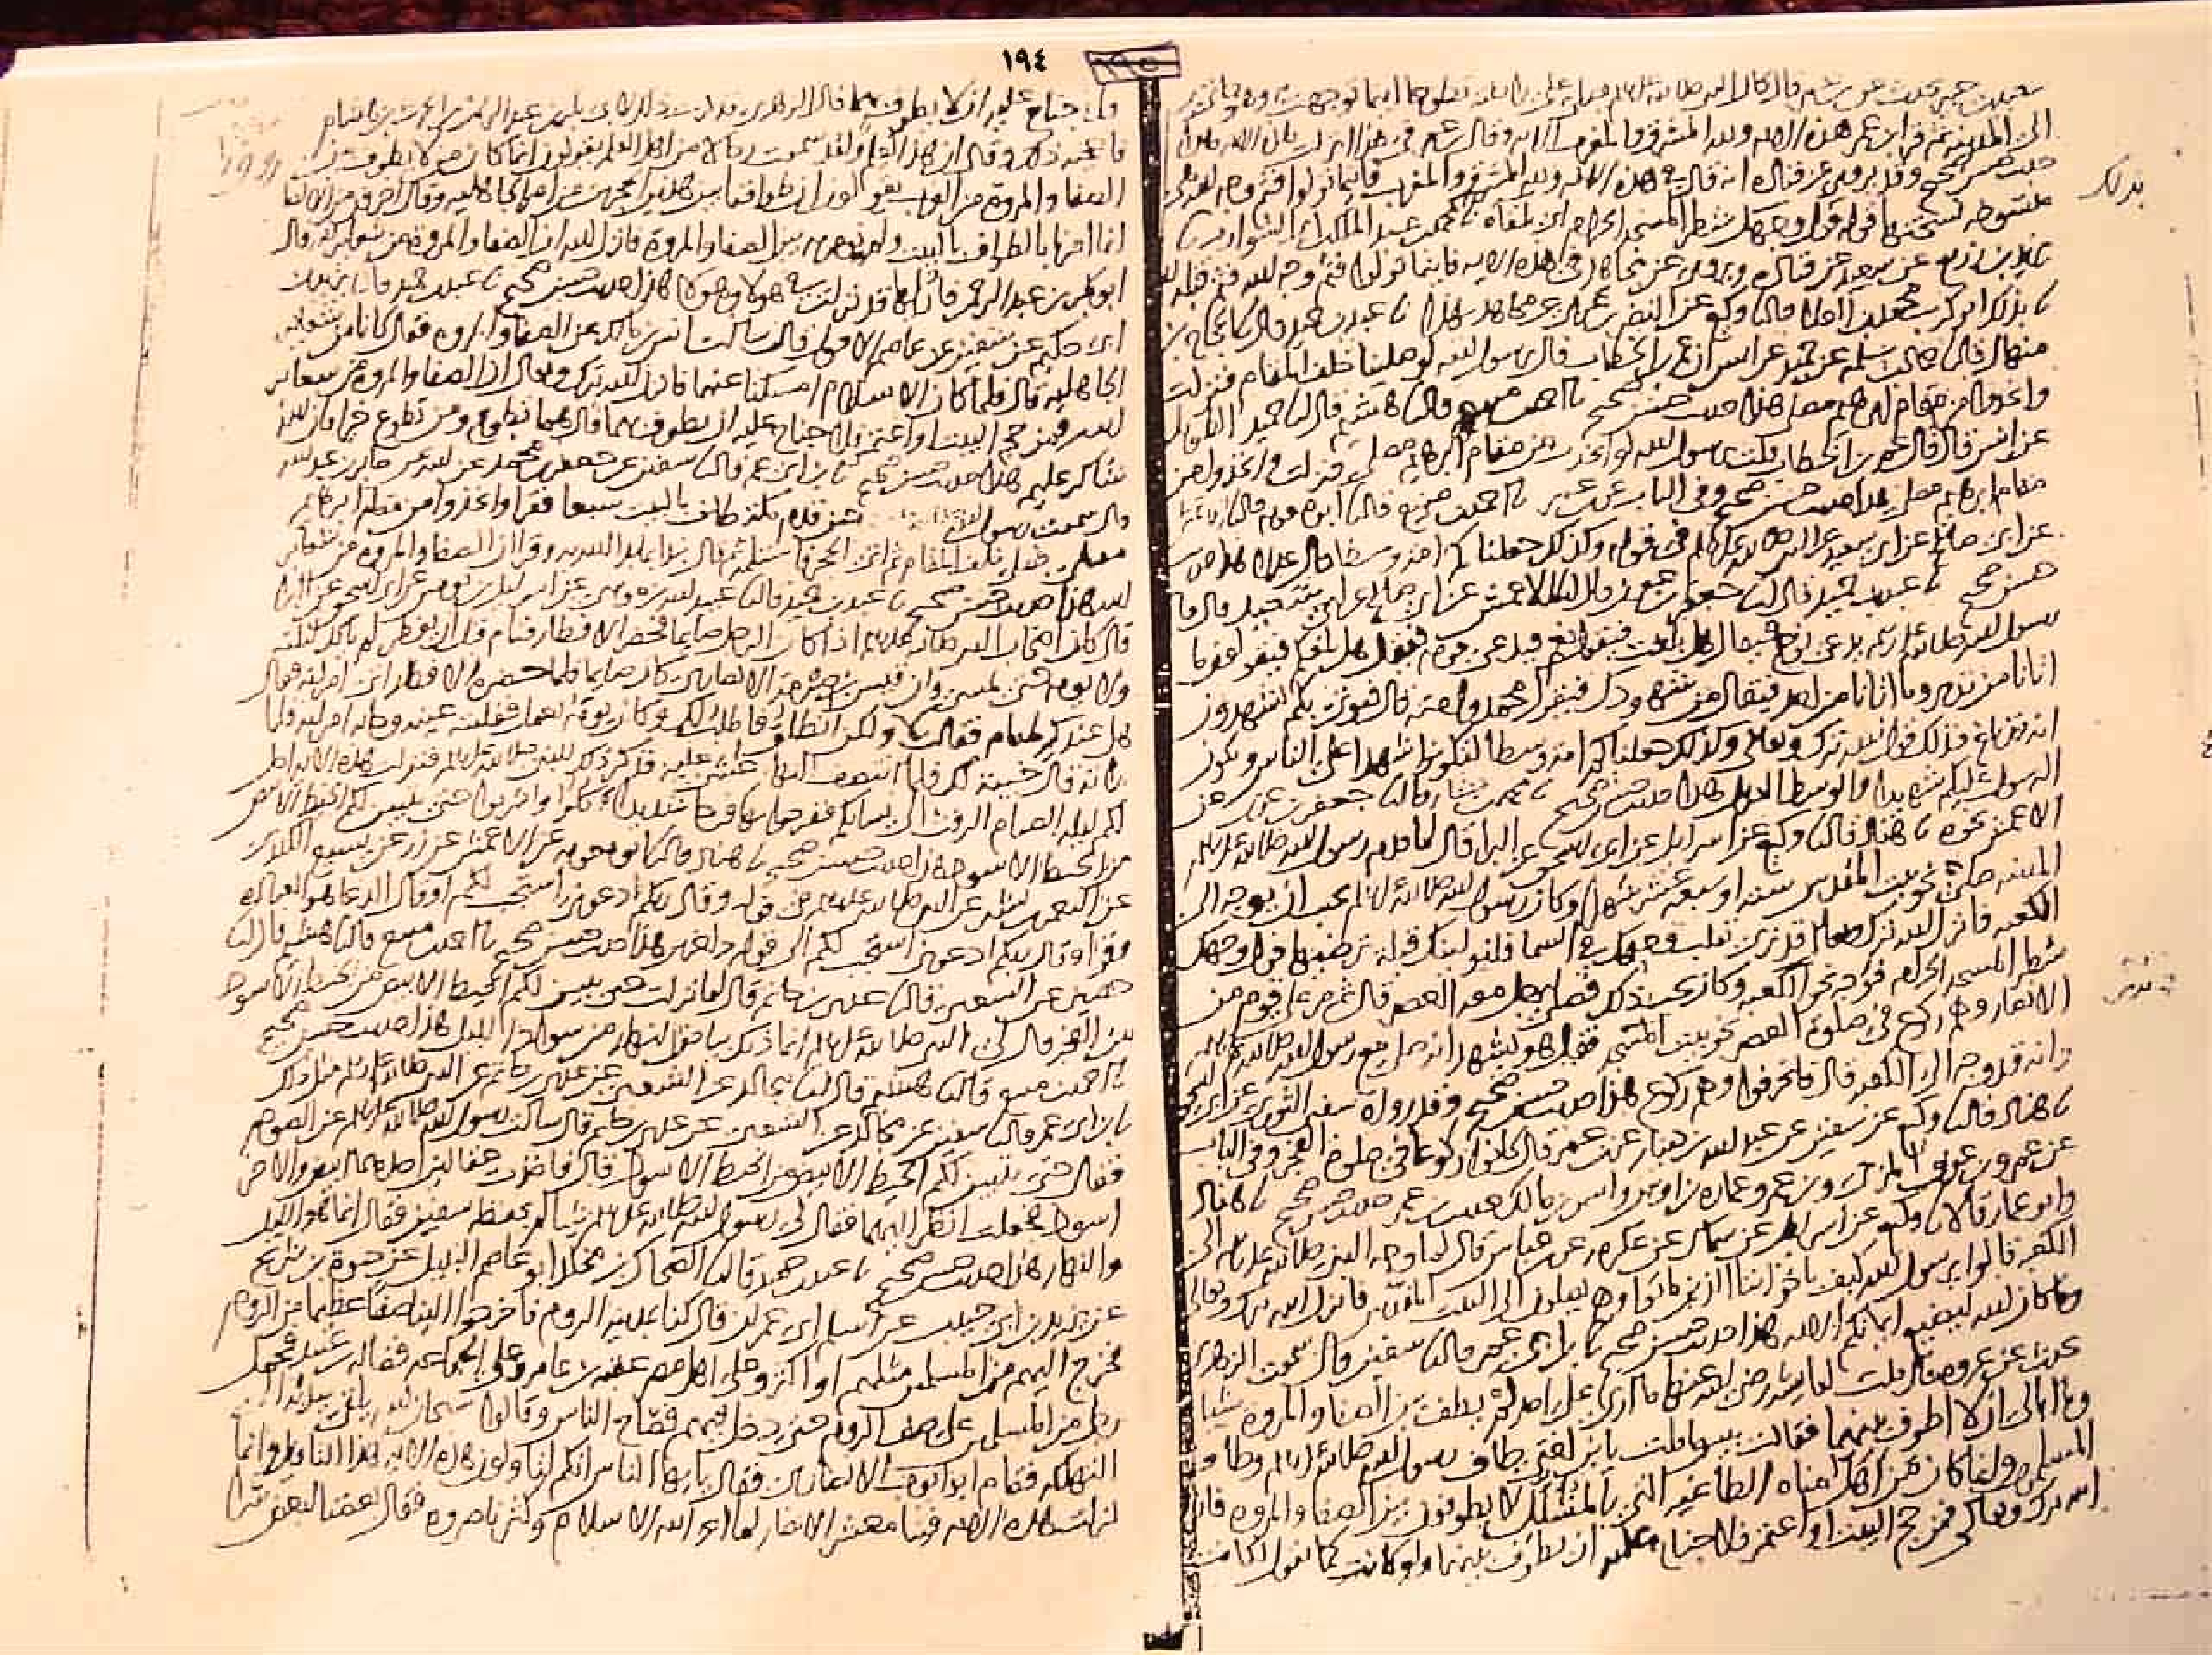 الى المدينه ثم قرا ابن عمر هذه الايه ولله المشرق والمغرب الايه وقال ابن عمر فى هذا انزلت هذه الايه هذا
حديث حسن صحيح وقد يروى عن قتاده انه قال فى هذه الايه ولله المشرق والمغرب فاينما تولوا فثم وجه الله هى
منسوخه نسختها قوله فول وجهك شطر المسجد الحرام اى تلقاه نا محمد بن عبد الملك بن ابى الشوارب نا
يزيد بن زريع عن سعيد عن قتاده ويروى عن مجاهد فى هذه الايه فاينما تولوا فثم وجه الله فثم قبله الله
نا بذلك ابو كريب محمد بن العلا قال نا وكيع عن النضر بن عربى عن مجاهد بهذا نا عبد بن حميد قال نا حجاج بن
منهال قال نا حماد بن سلمه عن حميد عن انس ان عمر بن الخطاب قال يرسول الله لو صلينا خلف المقام فنزلت
واتخذوا من مقام ابرهيم مصلى هذا حديث حسن صحيح نا احمد بن منيع قال نا هشيم قال انا حميد الطويل
عن انس قال قال عمر بن الخطاب قلت يرسول الله لو اتخذت من مقام ابرهيم مصلى فنزلت واتخذوا من
مقام ابرهيم مصلى هذا حديث حسن صحيح وفى الباب عن ابن عمر نا احمد بن منيع قال نا ابو معويه قال نا الاعمش
عن ابى صالح عن ابى سعيد عن النبى صلى الله عليه وسلم فى قوله وكذلك جعلناكم امه وسطا قال عدلا هذا حديث
حسن صحيح نا عبد بن حميد قال انا جعفر بن عون قال انا الاعمش عن ابى صالح عن ابى سعيد قال قال
رسول الله صلى الله عليه وسلم يدعى نوح فيقال هل بلغت فيقول نعم فيدعى قومه فيقال هل بلغكم فيقولون ما
اتانا من نذير وما اتانا من احد فيقال من شهودك فيقول محمد وامته قال فيوتى بكم تشهدون
انه قد بلغ فذلك قول الله تبرك وتعالى وكذلك جعلناكم امه وسطا لتكونوا شهدا على الناس ويكون
الرسول عليكم شهيدا والوسط العدل هذا حديث حسن صحيح نا محمد بن بشار قال نا جعفر بن عون عن
الاعمش نحوه نا هناد قال نا وكيع عن اسرايل عن ابى اسحق عن البرا قال لما قدم رسول الله صلى الله عليه وسلم
المدينه صلى نحو بيت المقدس سته او سبعه عشر شهرا وكان رسول الله صلى الله عليه وسلم يحب ان يوجه الى
الكعبه فانزل الله تبرك وتعالى قد نرى تقلب وجهك فى السما فلنولينك قبله ترضيها فول وجهك
شطر المسجد الحرام فوجه نحو الكعبه وكان يحب ذلك فصلى رجل معه العصر قال ثم مر على قوم من
الانصار وهم ركوع فى صلوه العصر نحو بيت المقدس فقال هو يشهد انه صلى مع رسول الله صلى الله عليه وسلم
وانه قد وجه الى الكعبه قال فانحرفوا وهم ركوع هذا حديث حسن صحيح وقد رواه سفين الثورى عن ابى اسحق
نا هناد قال نا وكيع عن سفين عن عبد الله بن دينار عن ابن عمر قال كانوا ركوعا فى صلوه الفجر وفى الباب
عن عمرو بن عوف المزنى وابن عمر وعماره بن اوس وانس بن مالك حديث ابن عمر حديث حسن صحيح نا هناد
وابو عمار قالا نا وكيع عن اسرايل عن سماك عن عكرمه عن ابن عباس قال لما وجه النبى صلى الله عليه وسلم الى
الكعبه قالوا يرسول الله كيف باخواننا الذين ماتوا وهم يصلون الى البيت المقدس فانزل الله تبرك وتعالى
وما كان الله ليضيع ايمانكم الايه هذا حديث حسن صحيح نا ابن ابى عمر قال نا سفين قال سمعت الزهرى
يحدث عن عروه قال قلت لعايشه رضى الله عنها ما ارى على احد لم يطف بين الصفا والمروه شيا
وما ابالى ان لا اطوف بينهما فقالت بيس ما قلت يابن اختى طاف رسول الله صلى الله عليه وسلم وطاف
المسلمون وانما كان من اهل لمناه الطاغيه التى بالمشلل لا يطوفون بين الصفا والمروه فانزل
الله تبرك وتعالى فمن حج البيت او اعتمر فلا جناح عليه ان يطوف بهما ولو كانت كما تقول لكانت
١٩٤
فلا جناح عليه ان لا يطوف بهما قال الزهرى فذكرت ذلك لابى بكر بن عبد الرحمن بن الحرث بن هشام
فاعجبه ذلك وقال ان هذا العلم ولقد سمعت رجالا من اهل العلم يقولون انما كان من لا يطوف بين
الصفا والمروه من العرب يقولون ان طوافنا بين هذين الحجرين من امر الجاهليه وقال اخرون من الانصار
انما امرنا بالطواف بالبيت ولم نومر به بين الصفا والمروه فانزل الله ان الصفا والمروه من شعاير الله قال
ابو بكر بن عبد الرحمن فاراها قد نزلت فى هولا وهولا هذا حديث حسن صحيح نا عبد بن حميد قال نا يزيد بن
ابى حكيم عن سفين عن عاصم الاحول قال سالت انس بن مالك عن الصفا والمروه فقال كانا من شعاير
الجاهليه قال فلما كان الاسلام امسكنا عنهما فانزل الله تبرك وتعالى ان الصفا والمروه من شعاير
الله فمن حج البيت او اعتمر فلا جناح عليه ان يطوف بهما قال هما تطوع ومن تطوع خيرا فان الله
شاكر عليم هذا حديث حسن صحيح نا ابن ابى عمر قال نا سفين عن جعفر بن محمد عن ابيه عن جابر بن عبد الله
قال سمعت رسول الله حين قدم مكه طاف بالبيت سبعا فقرا واتخذوا من مقام ابرهيم
مصلى فصلى خلف المقام ثم اتى الحجر فاستلمه ثم قال نبدا بما بدا الله به وقرا ان الصفا والمروه من شعاير
الله هذا حديث حسن صحيح نا عبد بن حميد قال نا عبيد الله بن موسى عن اسرايل بن يونس عن ابى اسحق عن البرا
قال كان اصحاب النبى صلى الله عليه وسلم اذا كان الرجل صايما فحضر الافطار فنام قبل ان يفطر لم ياكل ليلته
ولا يومه حتى يمسى وان قيس بن صرمه الانصارى كان صايما فلما حضره الافطار اتى امراته فقال
هل عندك طعام فقالت لا ولكن انطلق فاطلب لك وكان يومه يعمل فغلبته عينه وجاته امراته فلما
راته قالت خيبه لك فلما انتصف النهار غشى عليه فذكر ذلك للنبى صلى الله عليه وسلم فنزلت هذه الايه احل
لكم ليله الصيام الرفث الى نسايكم ففرحوا بها فرحا شديدا وكلوا واشربوا حتى يتبين لكم الخيط الابيض
من الخيط الاسود هذا حديث حسن صحيح نا هناد قال نا ابو معويه عن الاعمش عن ذر عن يسيع الكندى
عن النعمن بن بشير عن النبى صلى الله عليه وسلم فى قوله وقال ربكم ادعونى استجب لكم قال الدعا هو العباده
وقرا وقال ربكم ادعونى استجب لكم الى قوله داخرين هذا حديث حسن صحيح نا احمد بن منيع قال نا هشيم قال انا
حصين عن الشعبى قال نا عدى بن حاتم قال لما نزلت حتى يتبين لكم الخيط الابيض من الخيط الاسود
من الفجر قال لى النبى صلى الله عليه وسلم انما ذلك بياض النهار من سواد الليل هذا حديث حسن صحيح
نا احمد بن منيع قال نا هشيم قال انا مجالد عن الشعبى عن عدى بن حاتم عن النبى صلى الله عليه وسلم مثل ذلك
نا ابن ابى عمر قال نا سفين عن مجالد عن الشعبى عن عدى بن حاتم قال سالت رسول الله صلى الله عليه وسلم عن الصوم
فقال حتى يتبين لكم الخيط الابيض من الخيط الاسود قال فاخذت عقالين احدهما ابيض والاخر
اسود فجعلت انظر اليهما فقال لى رسول الله صلى الله عليه وسلم شيا لم يحفظه سفين فقال انما هو الليل
والنهار هذا حديث حسن صحيح نا عبد بن حميد قال نا الضحاك بن مخلد ابو عاصم النبيل عن حيوة بن شريح
عن يزيد بن ابى حبيب عن اسلم ابى عمران قال كنا بمدينه الروم فاخرجوا الينا صفا عظيما من الروم
فخرج اليهم من المسلمين مثلهم او اكثر وعلى اهل مصر عقبه بن عامر وعلى الجماعه فضاله بن عبيد فحمل
رجل من المسلمين على صف الروم حتى دخل فيهم فصاح الناس وقالوا سبحان الله يلقى بيديه الى
التهلكه فقام ابو ايوب الانصارى فقال يايها الناس انكم لتاولون هذه الايه هذا التاويل وانما
نزلت هذه الايه فينا معشر الانصار لما اعز الله الاسلام وكثر ناصروه فقال بعضنا لبعض سرا